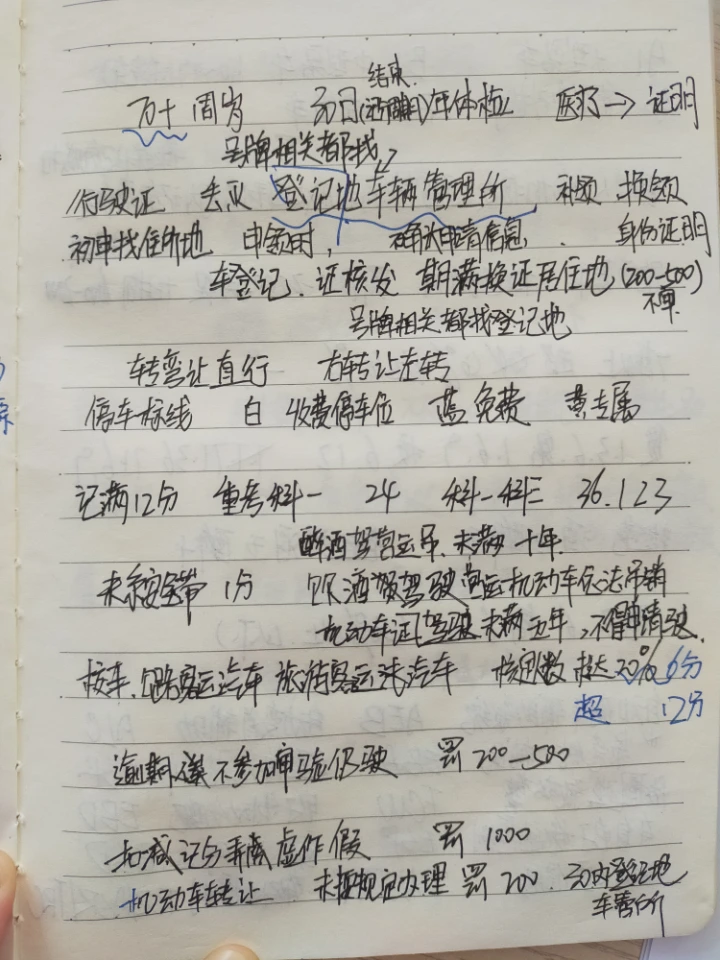 结束
70+ 周岁 30日(记分周期)年体检 医疗→证明
号牌相关都找
行驶证 丢失 登记地车辆管理所, 补领 换领
初申找住所地 申领时, 确认申请信息. 身份证明
车登记. 证核发 期满换证居住地(200-500)
号牌相关都找登记地
转弯让直行 右转让左转
停车标线 白 收费停车位 蓝 免费 黄专属
记满12分 重考科一 24 科一科三 36.123
醉酒驾营运吊.未满十年.
未系安全带 1分 饮酒驾驶营运机动车依法吊销
机动车证驾驶未满五年,不得申请驶.
校车.公路客运汽车 旅游客运汽车 核定人数 超过20% 6分
超 12分
逾期 不参加审验仍驶 罚200-500
扣减记分弄虚作假 罚 1000
机动车转让 未按规定办理 罚200. 30内登记地
车管所